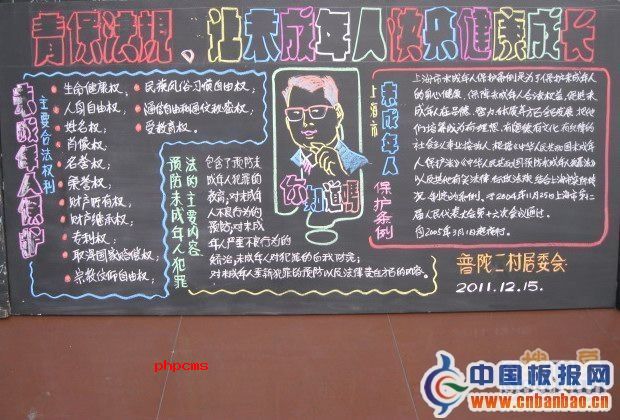 青保法规、让未成年人快乐健康成长
未成年人保护
主要合法权利
生命健康权;
人身自由权;
姓名权;
肖像权;
名誉权;
荣誉权;
财产所有权;
财产继承权;
专利权;
取得国家赔偿权;
宗教信仰自由权,
民族风俗习惯自由权;
通信自由和通信秘密权;
受教育权。
预防未成年人犯罪
法的主要内容
包含了预防未
成年人犯罪的
教育,对未成年
人不良行为的
预防;对未成
年人严重不良行为的
矫治;未成年人对犯罪的自我防范;
对未成年人重新犯罪的预防以及法律责任六方面的内容。
你知道吗
上海市
未成年人
保护条例
上海市未成年人保护条例是为了保护未成年人
的身心健康,保障未成年人合法权益,促进未
成年人在品德、智力、体质等方面全面发展,把他
们培养成为有理想、有道德、有文化、有纪律的
社会主义事业接班人,根据《中华人民共和国未成年
人保护法》《中华人民共和国预防未成年人犯罪法》
以及其他有关法律、行政法规,结合上海市实际情
况,制定的条例。于2004年11月25日上海市第十二
届人民代表大会第十六次会议通过。
自2005年3月1日起施行。
普陀二村居委会
2011.12.15.
phpcms
中国板报网
www.cnbanbao.cn